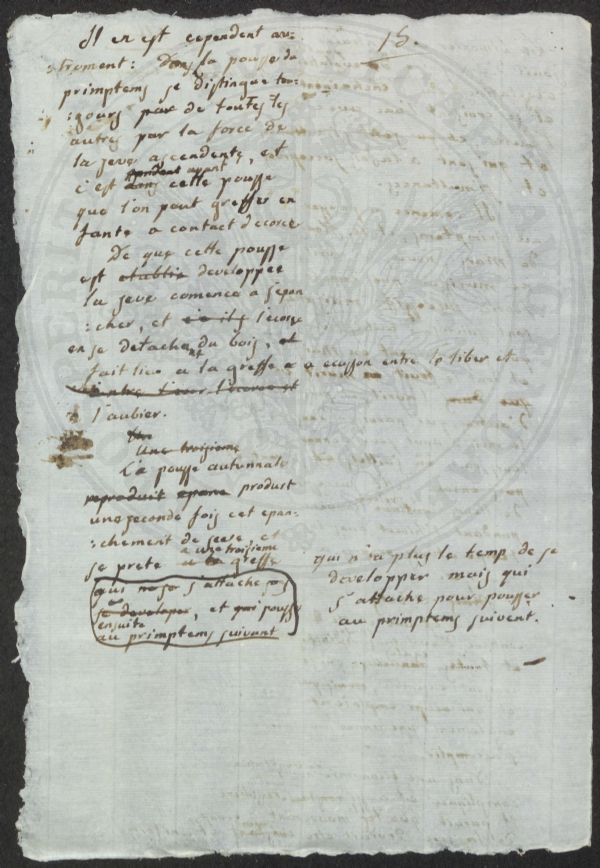 15.
Il en est cependent au-
:trement: Dans la pousse du
primptems se distingue tou-
:jours par de toutes les
autres par la force de
la seve ascendente, et
c'est pendent avant
dans cette pousse
que l'on peut greffer en
fante a contact d'ecorce
De que cette pousse
est etablie developpee
la seve comence a s'epan
:cher, et l'ecorse
en se detachant du bois, et
fait lieu a la greffe a ecusson entre le liber et
l'ecorce et
l'aubier.
Une troisieme
La pousse autunnale
reproduit epane produit
une seconde fois cet epan-
:chement de seve, et
a une troisieme
se prete a la greffe
qui s'attache
se developer, et qui pousse
ensuite
au primptems suivant
qui n'a plus le temp de se
developper mais qui
s'attache pour pousser
au primptems suivent.